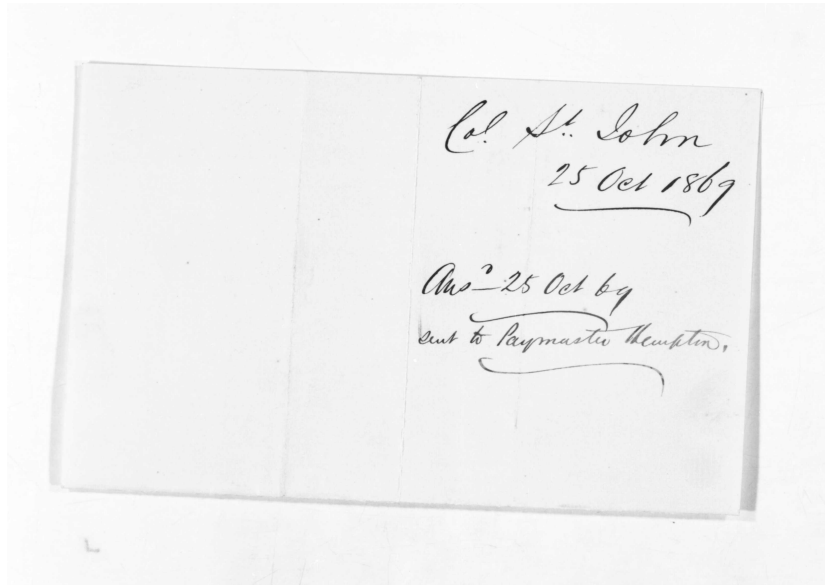 Col. St. John
25 Oct 1869
Ansd – 25 Oct 69
sent to Paymaster Hempton.